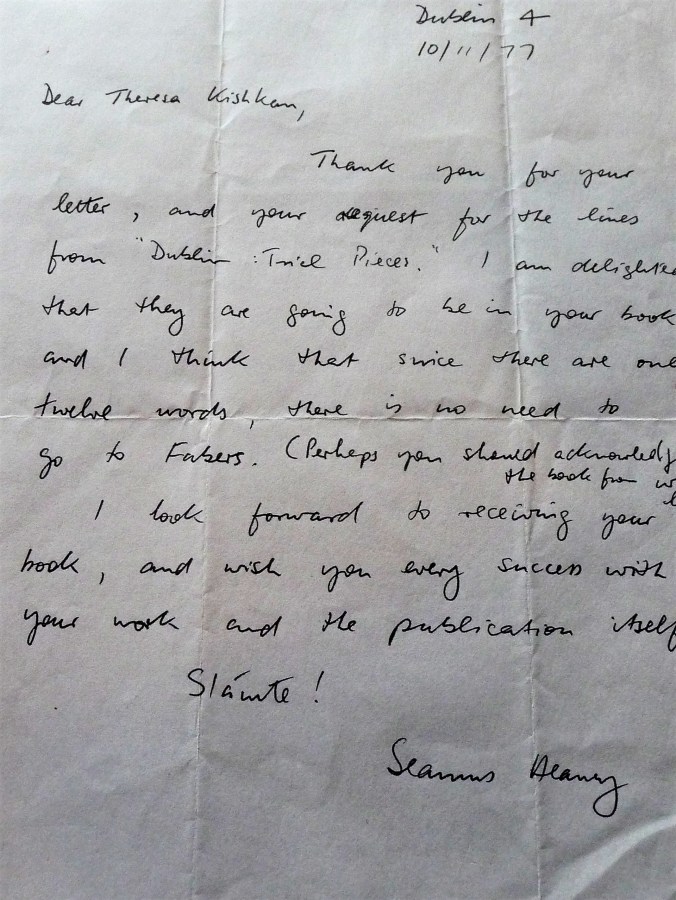 Dublin 4
10/11/77
Dear Theresa Kishkan,
Thank you for your
letter, and your request for the lines
from "Dublin : Trial Pieces." I am delighted
that they are going to be in your book
and I think that since there are
twelve words, there is no need to
go to Fabers. (Perhaps you should acknowledg
the book from
I look forward to receiving your
book, and wish you every success with
your work and the publication itself
Sláinte!
Seamus Heaney